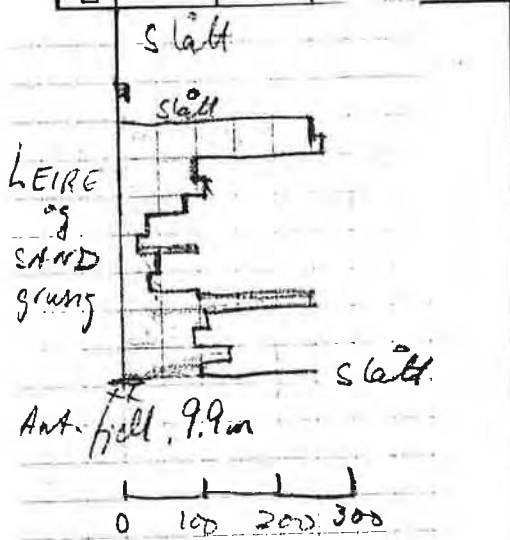 Slått
slått
LEIRE
og
SAND
grusig
Slått.
Ant. fjell. 9.9 m
0 100 200 300